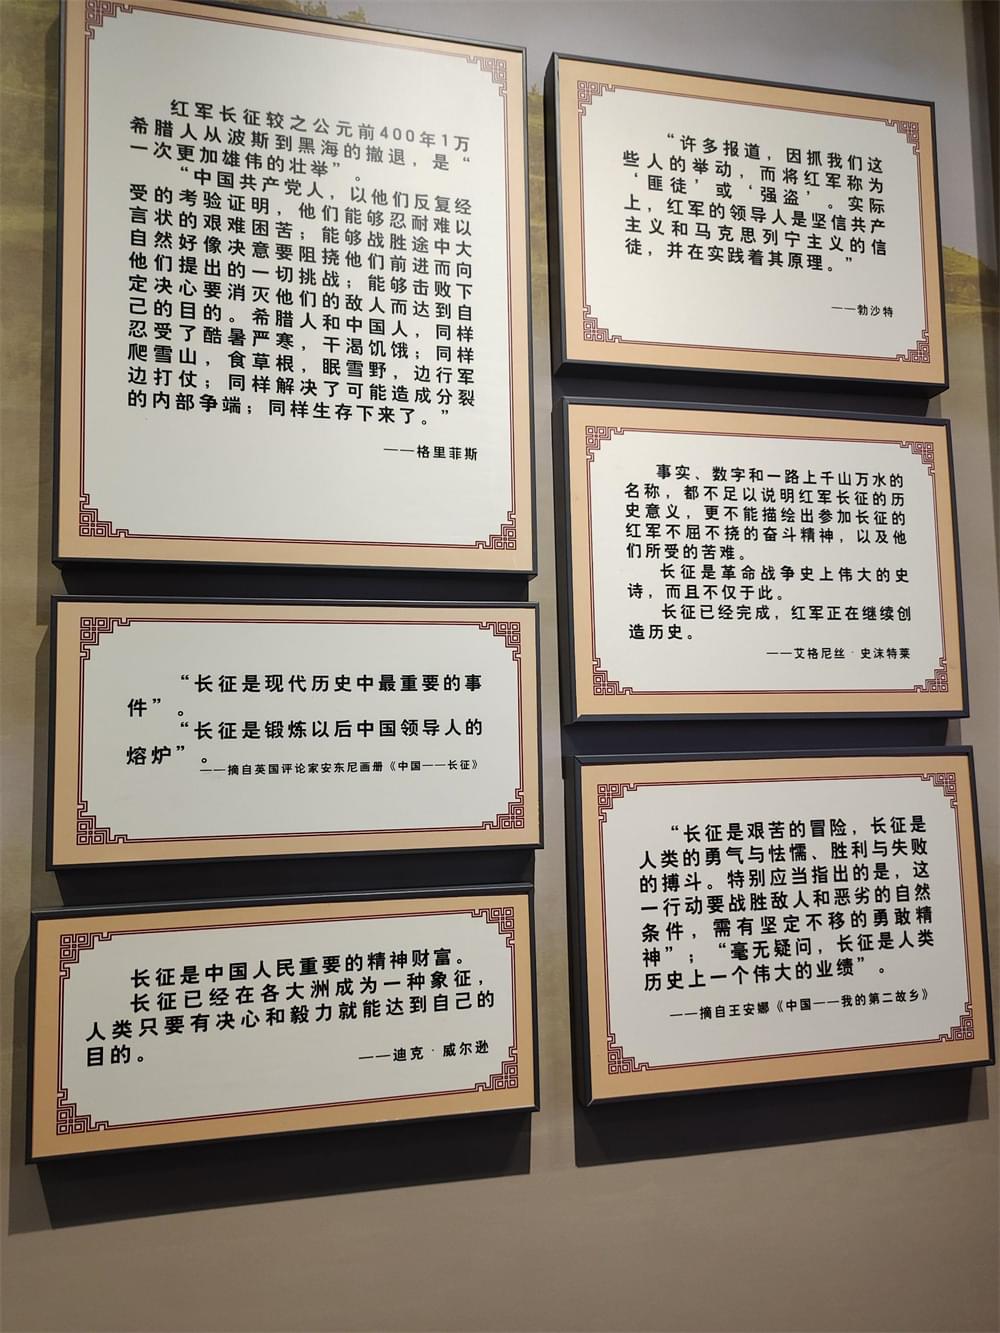 红军长征较之公元前400年1万
希腊人从波斯到黑海的撤退，是“
一次更加雄伟的壮举”。
“中国共产党人，以他们反复经
受的考验证明，他们能够忍耐难以
言状的艰难困苦；能够战胜途中大
自然好像决意要阻挠他们前进而向
他们提出的一切挑战；能够击败下
定决心要消灭他们的敌人而达到自
己的目的。希腊人和中国人，同样
忍受了酷暑严寒，干渴饥饿；同样
爬雪山，食草根，眠雪野，边行军
边打仗；同样解决了可能造成分裂
的内部争端；同样生存下来了。”
——格里菲斯
“长征是现代历史中最重要的事
件”。
“长征是锻炼以后中国领导人的
熔炉”。
——摘自英国评论家安东尼画册《中国——长征》
长征是中国人民重要的精神财富。
长征已经在各大洲成为一种象征，
人类只要有决心和毅力就能达到自己的
目的。
——迪克·威尔逊
“许多报道，因抓我们这
些人的举动，而将红军称为
‘匪徒’或‘强盗’。实际
上，红军的领导人是坚信共产
主义和马克思列宁主义的信
徒，并在实践着其原理。”
——勃沙特
事实、数字和一路上千山万水的
名称，都不足以说明红军长征的历
史意义，更不能描绘出参加长征的
红军不屈不挠的奋斗精神，以及他
们所受的苦难。
长征是革命战争史上伟大的史
诗，而且不仅于此。
长征已经完成，红军正在继续创
造历史。
——艾格尼丝·史沫特莱
“长征是艰苦的冒险，长征是
人类的勇气与怯懦、胜利与失败
的搏斗。特别应当指出的是，这
一行动要战胜敌人和恶劣的自然
条件，需有坚定不移的勇敢精
神”；“毫无疑问，长征是人类
历史上一个伟大的业绩”。
——摘自王安娜《中国——我的第二故乡》